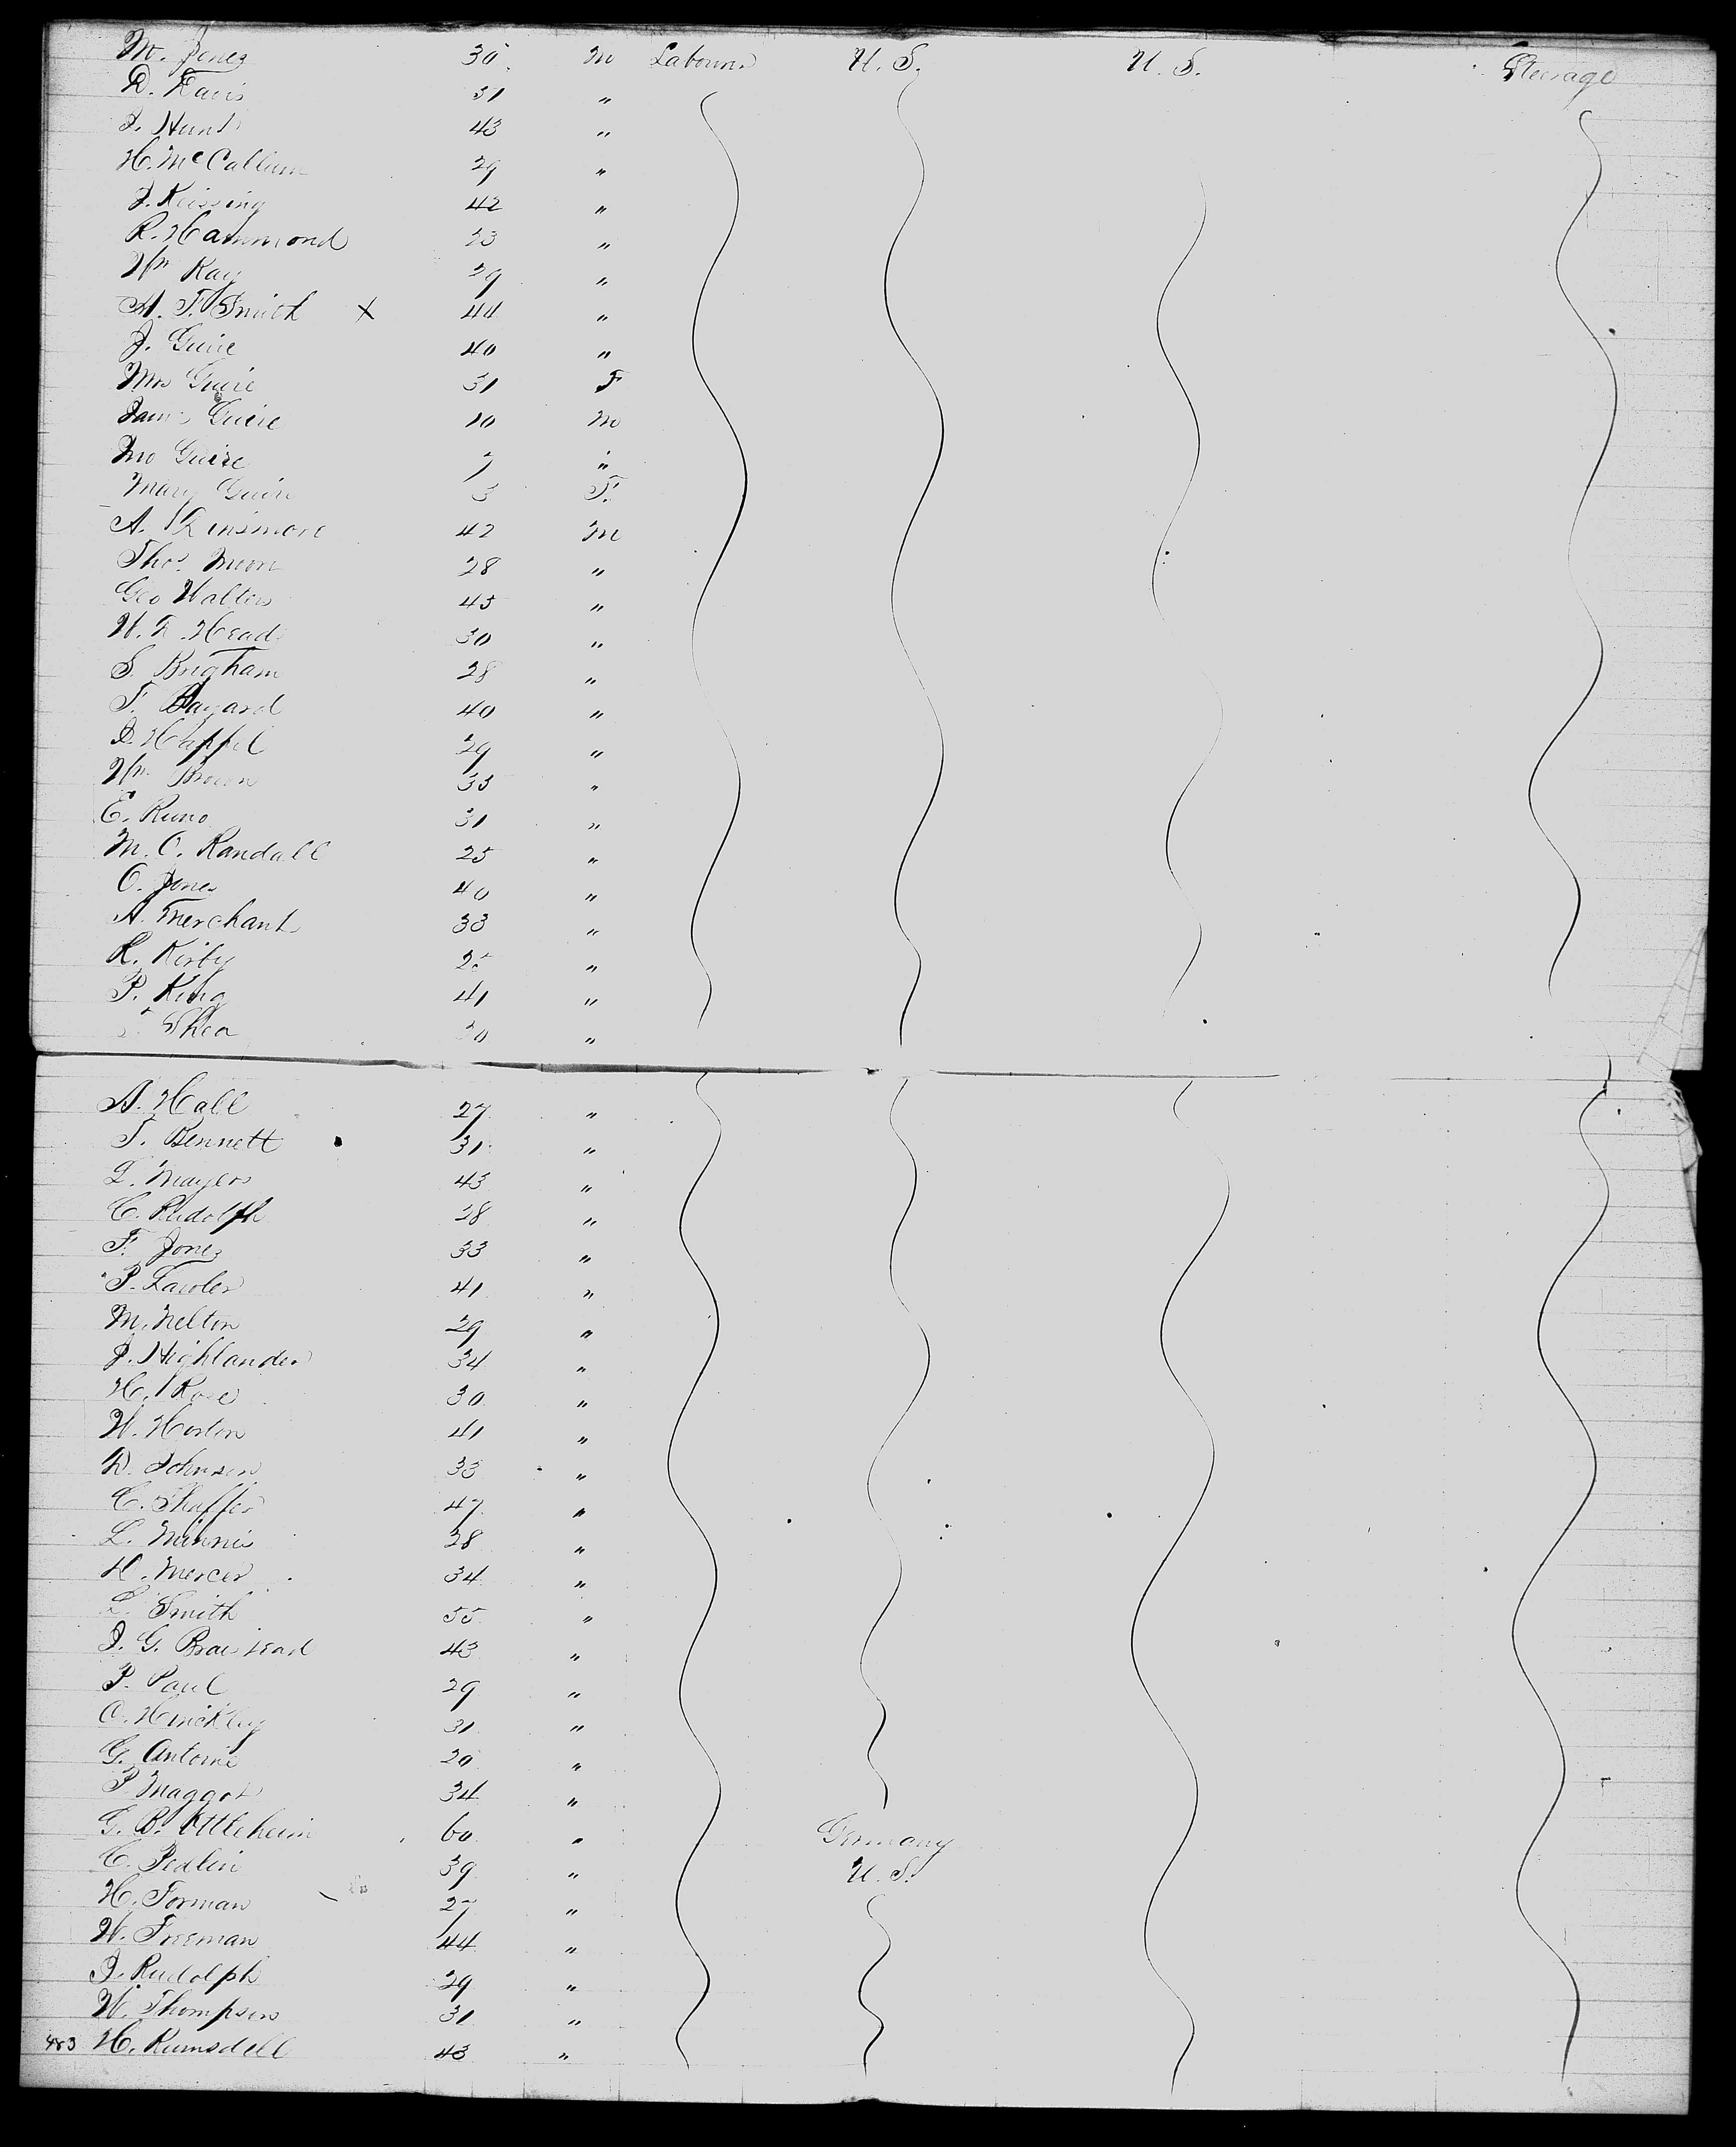 M. Jones 35 M Labourer U. S. U. S. Steerage
D. Davis 31 "
J. Hunt 43 "
H. McCallum 29 "
J. Keissing 42 "
R. Hammond 23 "
Wm Ray 29 "
A. F. Smith X 44 "
J. Guire 40 "
Mrs Guire 31 F
James Guire 10 M
Jno Guire 7 "
Mary Guire 3 F.
A. Dinsmore 42 M
Thos. 28 "
Geo Walters 45 "
W. R. Head 30 "
S. Brigham 28 "
T. Bayard 40 "
D. Happel 29 "
Wm Brown 35 "
E. Runo 31 "
M. C. Randall 25 "
O. Jones 40 "
A. Merchant 33 "
R. Kirby 25 "
P. King 41 "
Shea 30 "
A. Hall 27 "
T. Bennett 31 "
L. Mayers 43 "
C. Rudolph 28 "
F. Jones 33 "
P. Lawler 41 "
M. Nelton 29 "
J. Highlander 34 "
H. Rose 30 "
W. Horton 41 "
D. Johnson 33 "
C. Shaffer 47 "
L. Minnis 28 "
H. Mercer 34 "
L. Smith 55 "
J. G. 43 "
P. Paul 29 "
O. Hinckley 31 "
G. Antoine 20 "
P. Maggot 34 "
G. B. Ottleheim 60 " Germany
C. Pedlin 39 " U. S.
H. Forman 27 "
W. Freeman 44 "
J. Rudolph 29 "
W. Thompson 31 "
483 H. Rumsdell 43 "